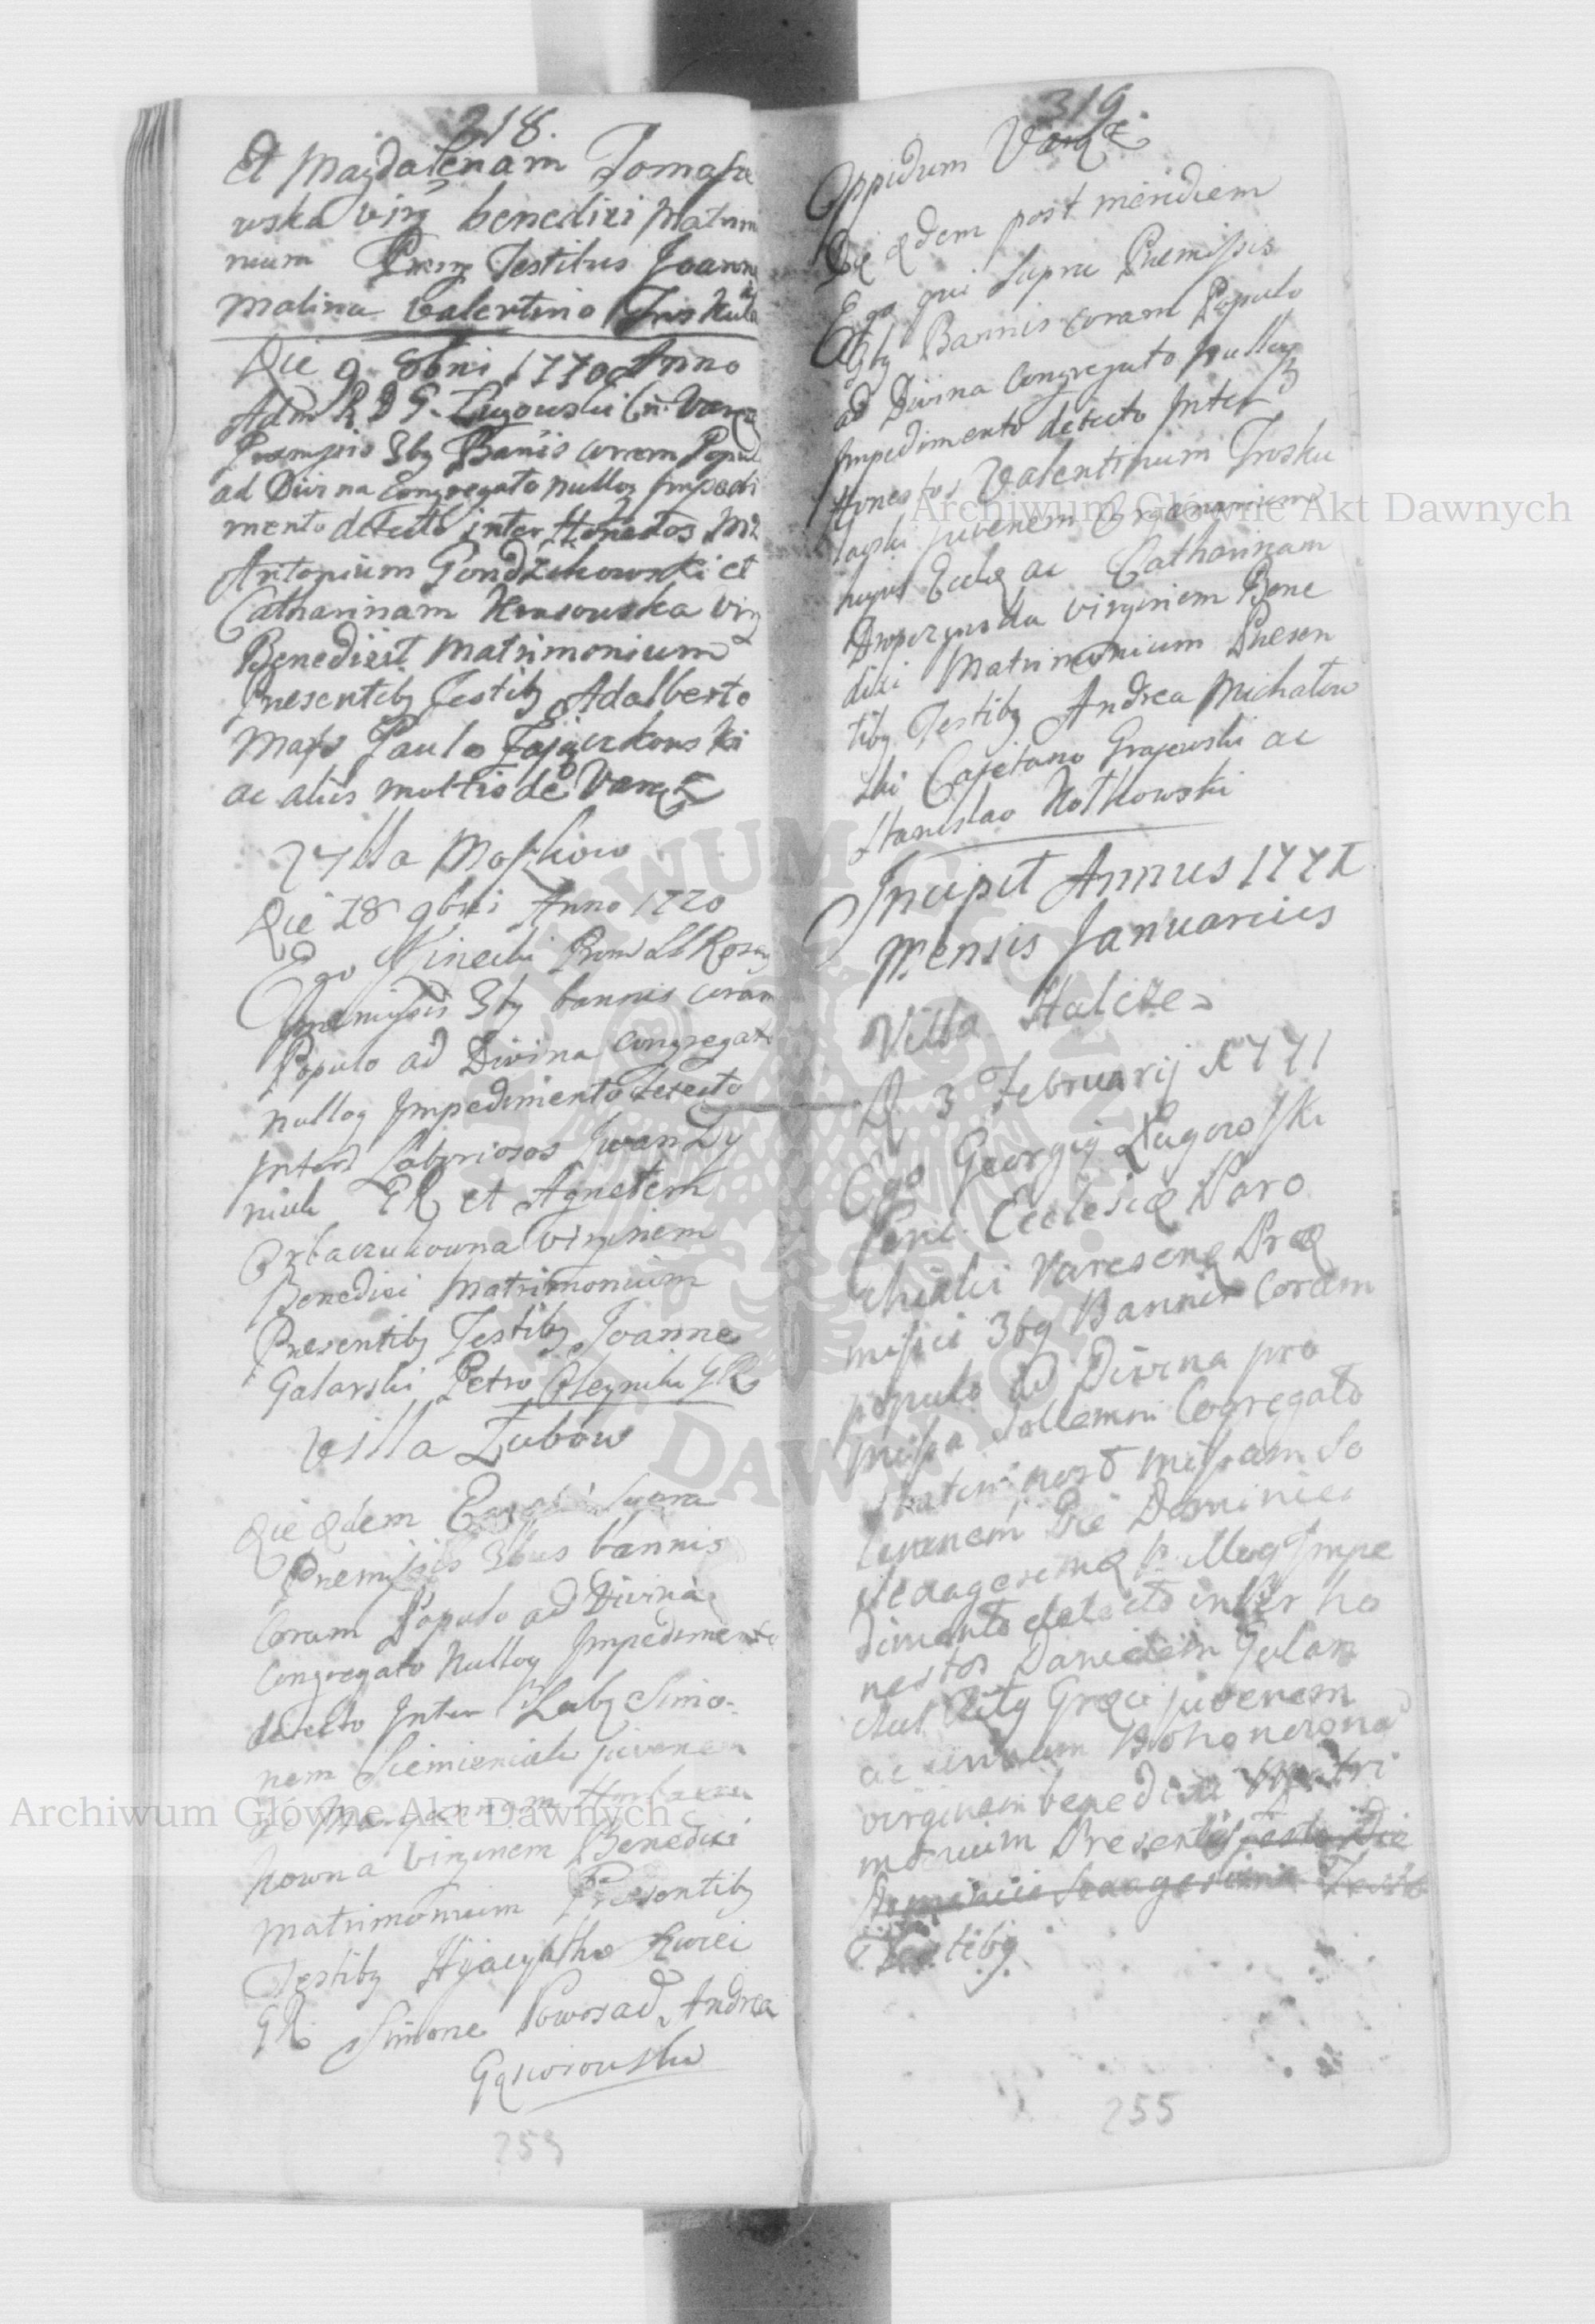 218.
Et Magdalenam Tomasze
wska virg benedixi matrimo
nium Pnsng Testibus Joanne
Malina Valentino Troskula
Die 9 8bris 1770 Anno
Adm R D G. Ługowski Cn. Varez
Praemissis 3bq Bannis corram Popul
ad Divina Congregato nulloq Impedi
mento detecto inter Honestos
Antonium Gondzikowski et
Catharinam Krasowska Virg
Benedixit Matrimonium
Presentibq Testibq Adalberto
Paulo
ac aliis multis de Varez
Villa Moszkow
Die 18 9bris Anno 1770
Ego Kinecki Prom SS Rosary
Premissis 3bq bannis coram
Populo ad Divina Congregato
nulloq Impedimento detecto
Inter Laboriosos Iwan Dy
niuk GR et Agnetem
virginem
Benedixi Matrimonium
Presentibq Testibq Joanne
Galarski Petro Oleynik GR
Villa Zubow
Die eadem Ego qui Supra
Premissis 3bus bannis
Coram Populo ad Divina
Congregato Nulloq Impedimento
detecto Inter Labq Simo-
nem Siemieniuk juvenem
ac Mariannam Horbaczu
kowna Virginem Benedixi
Matrimonium Presentibq
Testibq Hyacyntho
GR. Simone Powosad Andrea
Gąsiorowski
253
319.
Oppidum Varez
Die eadem post meridiem
Ego qui Supra Premissis
3bq Bannis coram Populo
ad Divina Congregato nulloq
Impedimento detecto Inter
Honestos Valentinum Trosku
lawski juvenem Organarium
hujus Eccle ac Catharinam
virginem Bene
dixi Matrimonium Presen
tibq Testibq Andrea Michałow
ski Cajetano Grajewski ac
Stanislao Kotkowski
Incipit Annus 1771
Mensis Januarius
Villa Halcze
D 3 Februarij 1771
Ego Georgiq Ługowski
Eccłesiæ Paro
chialis Varesenę Præ
missis 3bq Bannis Coram
populo ad Divina pro
Missa Sollemni Congregato
statim post Missam So
lennem Die Dominica
Nulloq Impe
dimento detecto inter ho
nestos Danielem
Ritq Græci juvenem
ac
virginem benedixi Matri
monium Presentibq
Testibq
255
Archiwum Główne Akt Dawnych
Archiwum Główne Akt Dawnych